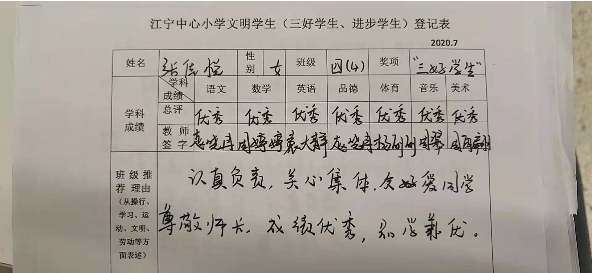 江宁中心小学文明学生（三好学生、进步学生）登记表
2020.7
姓名 张佳悦 性别 女 班级 四(4) 奖项 "三好学生"
学科成绩 学科 成绩 语文 数学 英语 品德 体育 音乐 美术
总评 优秀 优秀 优秀 优秀 优秀 优秀 优秀
教师签字
班级推荐理由（从操行、学习、运动、文明、劳动等方面表述）
认真负责，关心集体，友好爱同学
尊敬师长，成绩优秀，品学兼优。